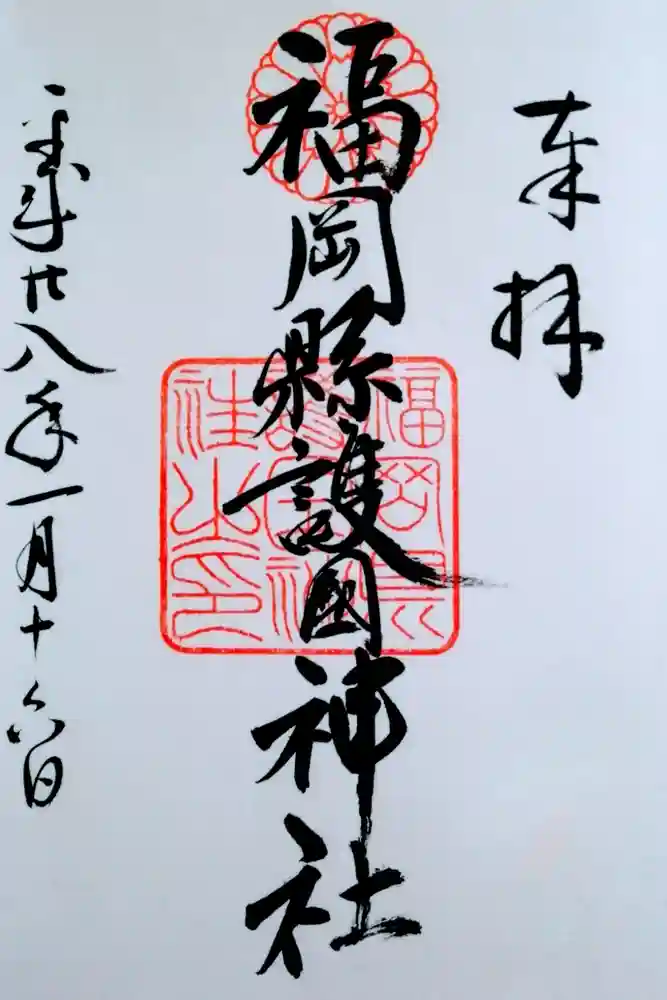 奉拝
福岡縣護國神社
平成廿八年一月十六日
福岡県
護国神
社之印